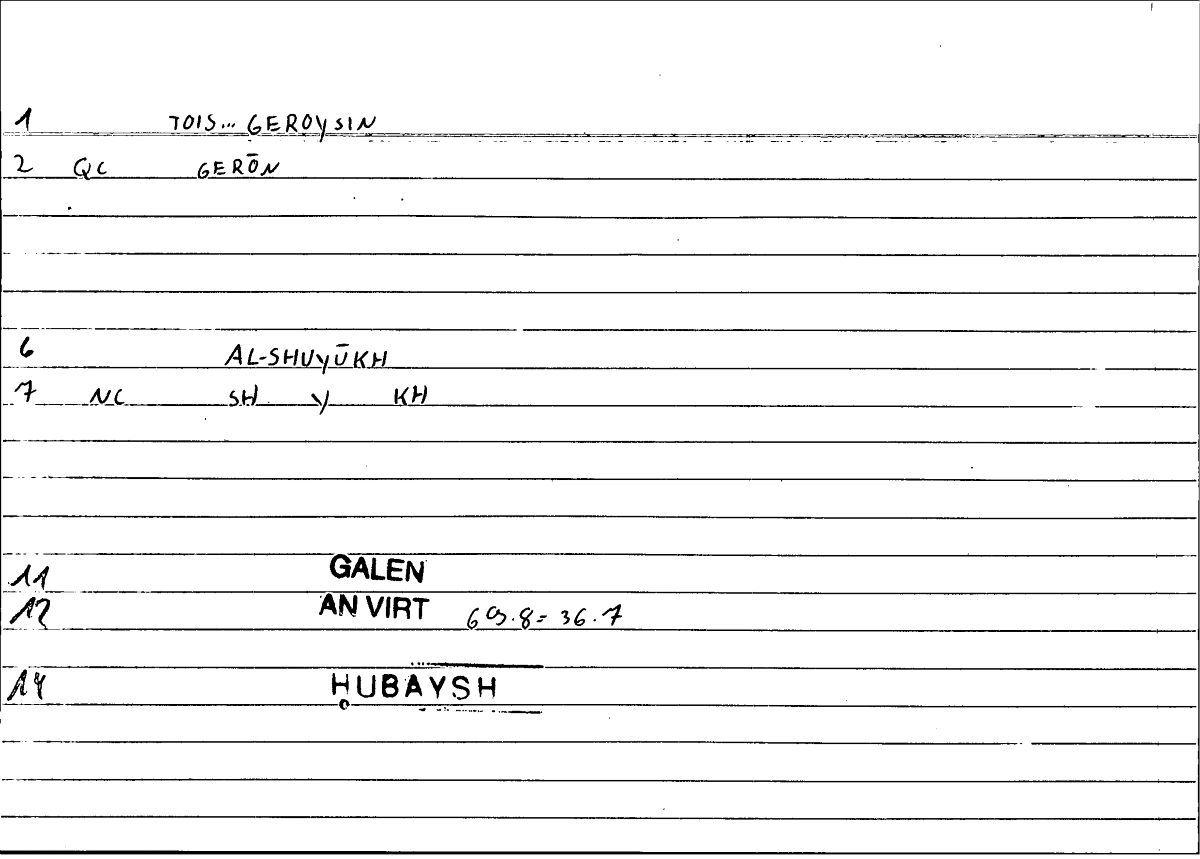 1 TOIS... GEROYSIN
2 QC GERŌN
6 AL-SHUYŪKH
7 NC SH Y KH
11 GALEN
12 AN VIRT 69.8 = 36.7
14 ḤUBAYSH